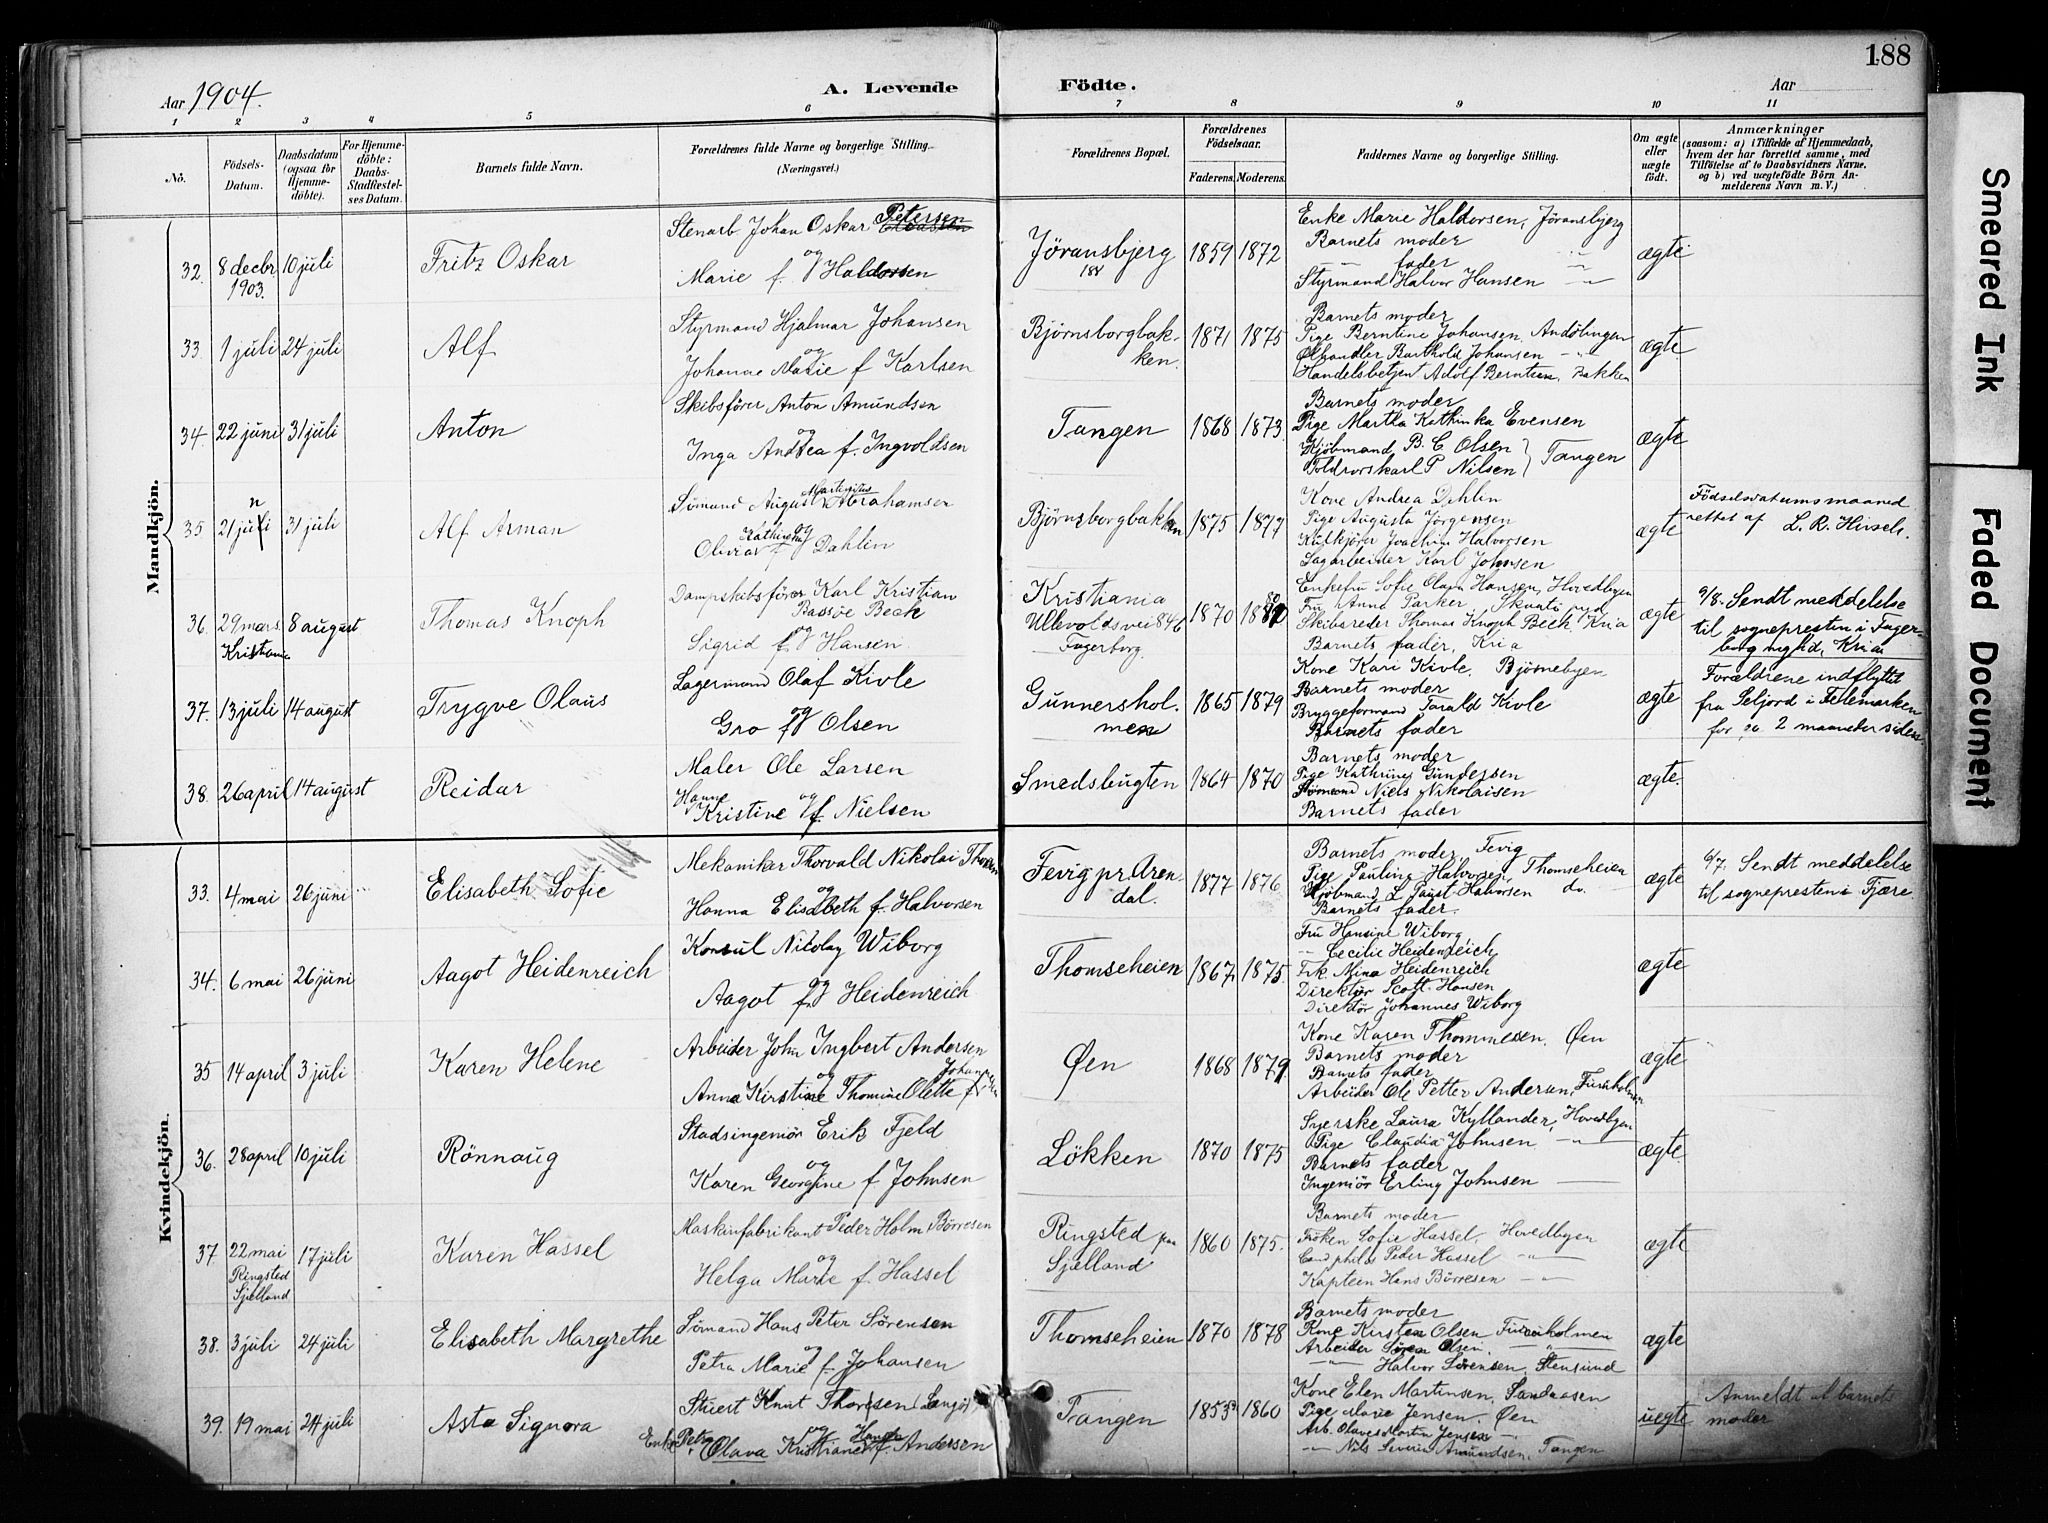 188
Aar 1904. A. Levende Födte. Aar
1 2 3 4 5 6 7 8 9 10 11
No.
Födsels-Datum.
Daabsdatum (ogsaa for Hjemme-döbte).
For Hjemme-döbte: Daabs-Stadfæstel-ses Datum.
Barnets fulde Navn.
Forældrenes fulde Navne og borgerlige Stilling. (Næringsvei.)
Forældrenes Bopæl.
Forældrenes Födselsaar.
Faderens. Moderens.
Faddernes Navne og borgerlige Stilling.
Om ægte eller uægte födt.
Anmærkninger
(saasom: a) i Tilfælde af Hjemmedaab,
hvem der har forrettet samme, med
Tilföielse af to Daabsvidners Navne.
og b) ved uægtefödte Börn An-
melderens Navn m. V.)
Mandkjön.
32. 8 decbr 1903. 10 juli Fritz Oskar
Stenarb Johan Oskar Petersen
og
Marie f. Haldorsen
Jöransbjerg 1859 1872
Enke Marie Haldorsen, Jöransbjerg
Barnets moder
fader
Styrmand Halvor Hansen
ægte
33. 1 juli 24 juli Alf
Styrmand Hjalmar Johansen
og
Johanne Marie f Karlsen
Björnsborgbak-
ken. 1871 1875
Barnets moder
Pige Berntine Johansen, Andöbugen
Ölhandler Barthold Johansen
Handelsbetjent Adolf Berntsen, Bakken
ægte
34. 22 juni 31 juli Anton
Skibsförer Anton Amundsen
og
Inga Andrea f. Ingvoldsen
Tangen 1868 1873
Barnets moder
Pige Martha Kathinka Evensen
Kjöbmand B. C. Olsen
Toldrorskarl P Nilsen Tangen
ægte
35 21 juli n 31 juli Alf Arman
Sömand August Martinius Abrahamsen
og
Olivia Kathinka f Dahlin
Björnsborgbakken 1875 1877
Kone Andrea Dehlin
Pige Augusta Jörgensen
Kulkjörer Joachim Halvorsen
Sagarbeider Karl Johnsen
ægte
Födselsdatums maaned
rettet af L. R. Hirsch.
36. 29 mars Kristiania 8 august Thomas Knoph
Dampskibsförer Karl Kristian
Bassöe Beck
og
Sigrid f. Hansen.
Kristiania
Ullevoldsvei 84b
Fagerborg. 1870 1880
Enkefru Sofie Olava Hansen, Hovedbyen
Fru Anna Parker
Skibsreder Thomas Knoph Beck, Kria
Barnets fader, Kria
ægte
9/8. Sendt meddelelse
til sognepresten i Fager-
borg meghd, Kria
37. 13 juli 14 august Trygve Olaus
Lagermand Olaf Kivle
og
Gro f Olsen
Gunnershol-
men 1865 1879
Kone Kari Kivle, Bjönnebyen
Barnets moder
Bryggeformand Torald Kivle
Barnets fader
ægte
Forældrene indflyttet
fra Seljord i Telemarken
for ca. 2 maaneder siden.
38. 26 april 14 august Reidar
Maler Ole Larsen
og
Hanne Kristine f. Nielsen
Smedsbugten 1864 1870
Barnets moder
Pige Kathrine Gundersen
Sömand Niels Nikolaisen
Barnets fader
ægte.
Kvindekjön.
33. 4 mai 26 juni Elisabeth Sofie
Mekaniker Thorvald Nikolai Thorsen
og
Hanna Elisabeth f. Halvorsen
Fevig pr. Aren-
dal. 1877 1876
Barnets moder, Fevig
Pige Pauline Halvorsen, Thomseheien
Kjöbmand L Faust Halvorsen do.
Barnets fader.
ægte
6/7. Sendt meddelelse
til sognepresten i Fjære.
34. 6 mai 26 juni Aagot Heidenreich
Konsul Nicolay Wiborg
og
Aagot f. Heidenreich
Thomseheien 1867 1875.
Fru Hansine Wiborg
Cecilie Heidenreich
Frk. Mina Heidenreich
Direktör Scott-Hansen
Direktör Johannes Wiborg
ægte
35 14 april 3 juli Karen Helene
Arbeider John Ingbert Andersen
og
Anna Kirstine Thomine Olette f. Johannesen
Øen 1868 1879
Kone Karen Thommesen. Øen
Barnets moder
Barnets fader
Arbeider Ole Petter Andersen, Furuholmen
ægte
36. 28 april 10 juli Rönnaug
Stadsingeniör Erik Fjeld
og
Karen Georgine f. Johnsen
Lökken 1870 1875
Syerske Laura Kyllander, Hovedbyen
Pige Claudia Johnsen
Barnets fader
Ingeniör Erling Johnsen
ægte.
37 22 mai Ringsted Sjælland 17 juli Karen Hassel
Maskinfabrikant Peder Holm Börresen
og
Helga Marie f. Hassel
Ringsted paa
Sjælland 1860 1875.
Barnets moder
Fröken Sofie Hassel, Hovedbyen
Cand philos Peder Hassel
Kaptein Hans Börresen
ægte
38. 3 juli 24 juli Elisabeth Margrethe
Sömand Hans Peter Sörensen
og
Petra Marie f. Johansen
Thomseheien 1870 1878
Barnets moder
Kone Kirsten Olsen Furuholmen
Arbeider Sören Olsen.
Halvor Sörensen, Stensund
ægte
39. 19 mai 24 juli Asta Signora
Stuert Knut Thoresen (Langö)
og
Enke Petra Olava Kristiane Hansen f. Andersen
Tangen 1853 1860
Kone Elen Martinsen, Sandaasen
Pige Marie Jensen Øen
Arb. Olaves Martin Jensen
Nils Severin Amundsen, Tangen
uægte
Anmeldt af barnets
moder
Smeared Ink
Faded Document